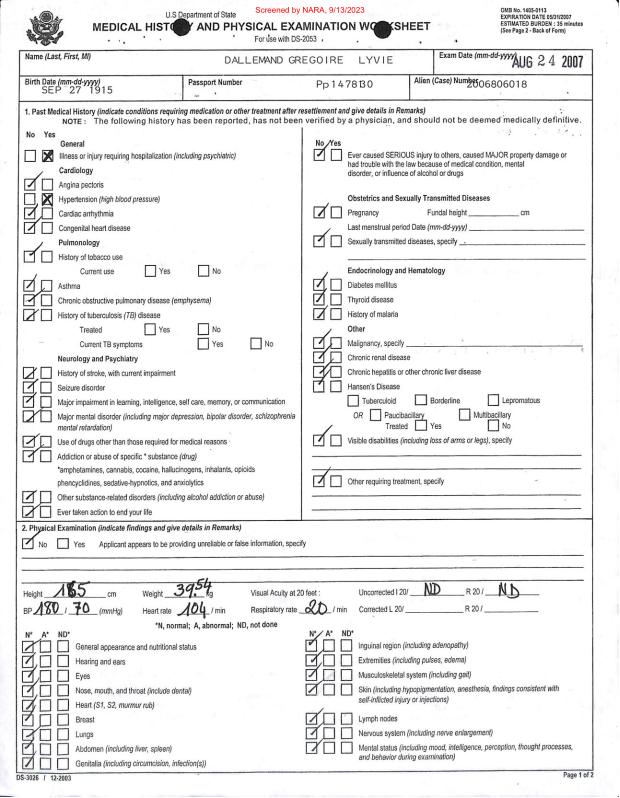 Screened by NARA, 9/13/2023
U.S Department of State
OMB No. 1405-0113
EXPIRATION DATE 05/31/2007
ESTIMATED BURDEN: 35 minutes
(See Page 2 - Back of Form)
MEDICAL HISTORY AND PHYSICAL EXAMINATION WORKSHEET
For use with DS-2053
Name (Last, First, MI)
DALLEMAND GREGOIRE LYVIE
Exam Date (mm-dd-yyyy)
AUG 24 2007
Birth Date (mm-dd-yyyy)
SEP 27 1915
Passport Number
Pp1478130
Alien (Case) Number
2006806018
1. Past Medical History (indicate conditions requiring medication or other treatment after resettlement and give details in Remarks)
NOTE : The following history has been reported, has not been verified by a physician, and should not be deemed medically definitive.
No Yes
General
Illness or injury requiring hospitalization (including psychiatric)
Cardiology
Angina pectoris
Hypertension (high blood pressure)
Cardiac arrhythmia
Congenital heart disease
Pulmonology
History of tobacco use
Current use Yes No
Asthma
Chronic obstructive pulmonary disease (emphysema)
History of tuberculosis (TB) disease
Treated Yes No
Current TB symptoms Yes No
Neurology and Psychiatry
History of stroke, with current impairment
Seizure disorder
Major impairment in learning, intelligence, self care, memory, or communication
Major mental disorder (including major depression, bipolar disorder, schizophrenia
mental retardation)
Use of drugs other than those required for medical reasons
Addiction or abuse of specific * substance (drug)
*amphetamines, cannabis, cocaine, hallucinogens, inhalants, opioids
phencyclidines, sedative-hypnotics, and anxiolytics
Other substance-related disorders (including alcohol addiction or abuse)
Ever taken action to end your life
No Yes
Ever caused SERIOUS injury to others, caused MAJOR property damage or
had trouble with the law because of medical condition, mental
disorder, or influence of alcohol or drugs
Obstetrics and Sexually Transmitted Diseases
Pregnancy Fundal height cm
Last menstrual period Date (mm-dd-yyyy)
Sexually transmitted diseases, specify
Endocrinology and Hematology
Diabetes mellitus
Thyroid disease
History of malaria
Other
Malignancy, specify
Chronic renal disease
Chronic hepatitis or other chronic liver disease
Hansen's Disease
Tuberculoid Borderline Lepromatous
OR Paucibacillary Multibacillary
Treated Yes No
Visible disabilities (including loss of arms or legs), specify
Other requiring treatment, specify
2. Physical Examination (indicate findings and give details in Remarks)
No Yes Applicant appears to be providing unreliable or false information, specify
Height cm Weight 39.54 kg Visual Acuity at 20 feet : Uncorrected l 20/ ND R 20 / ND
BP 180 / 70 (mmHg) Heart rate 104 / min Respiratory rate 20 / min Corrected L 20/ R 20 /
*N, normal; A, abnormal; ND, not done
N* A* ND*
General appearance and nutritional status
Hearing and ears
Eyes
Nose, mouth, and throat (include dental)
Heart (S1, S2, murmur rub)
Breast
Lungs
Abdomen (including liver, spleen)
Genitalia (including circumcision, infection(s))
N* A* ND*
Inguinal region (including adenopathy)
Extremities (including pulses, edema)
Musculoskeletal system (including gait)
Skin (including hypopigmentation, anesthesia, findings consistent with
self-inflicted injury or injections)
Lymph nodes
Nervous system (including nerve enlargement)
Mental status (including mood, intelligence, perception, thought processes,
and behavior during examination)
DS-3026 / 12-2003
Page 1 of 2